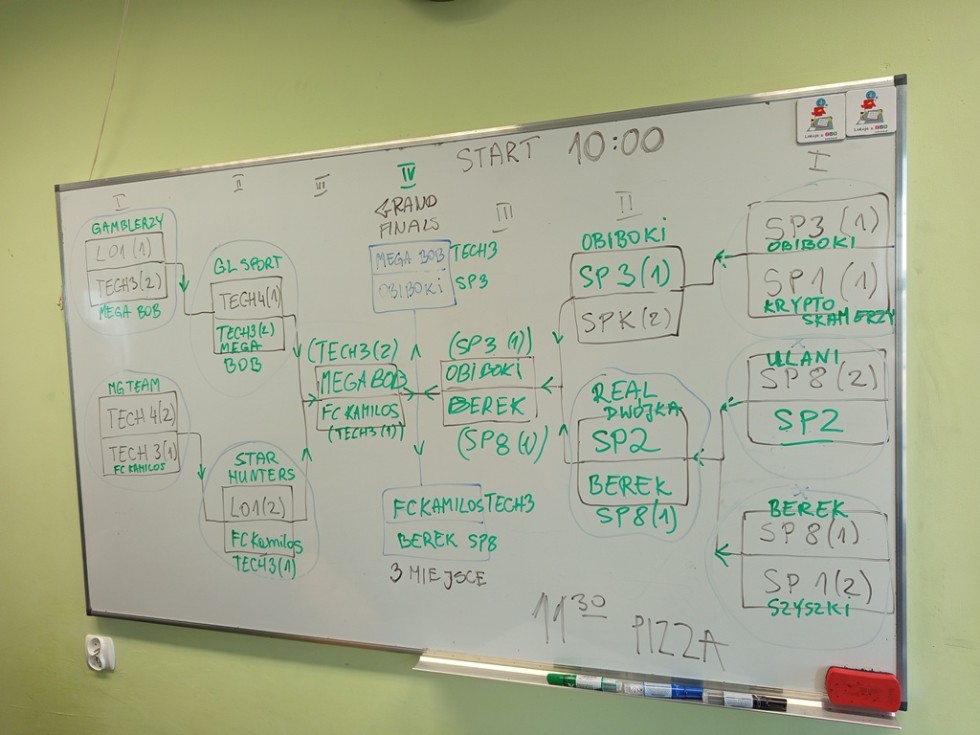 START 10:00
I
II
III
IV
III
II
I
GRAND
FINALS
MEGA BOB TECH3
OBIBOKI SP3
GAMBLERZY
LO1(1)
TECH3(2)
MEGA BOB
MGTEAM
TECH4(2)
TECH3(1)
FC KAMILOS
GLSPORT
TECH4(1)
TECH3(2)
MEGA
BOB
STAR
HUNTERS
LO1(2)
FC Kamilos
TECH3(1)
(TECH3(2)
MEGA BOB
FC KAMILOS
(TECH3(1))
(SP3(1))
OBIBOKI
BEREK
(SP8(1)
FC KAMILOS TECH3
BEREK SP8
3 MIEJSCE
OBIBOKI
SP3(1)
SPK(2)
REAL
DWÓJKA
SP2
BEREK
SP8(1)
SP3(1)
OBIBOKI
SP1(1)
KRYPTO
SKAMERZY
ULANI
SP8(2)
SP2
BEREK
SP8(1)
SP1(2)
SZYSZKI
11³⁰ PIZZA